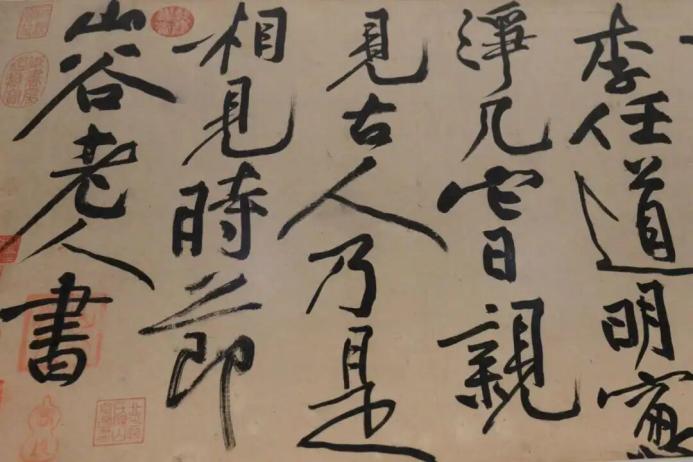 李任道明窓
淨几它日親
見古人乃是
相見時節
山谷老人書